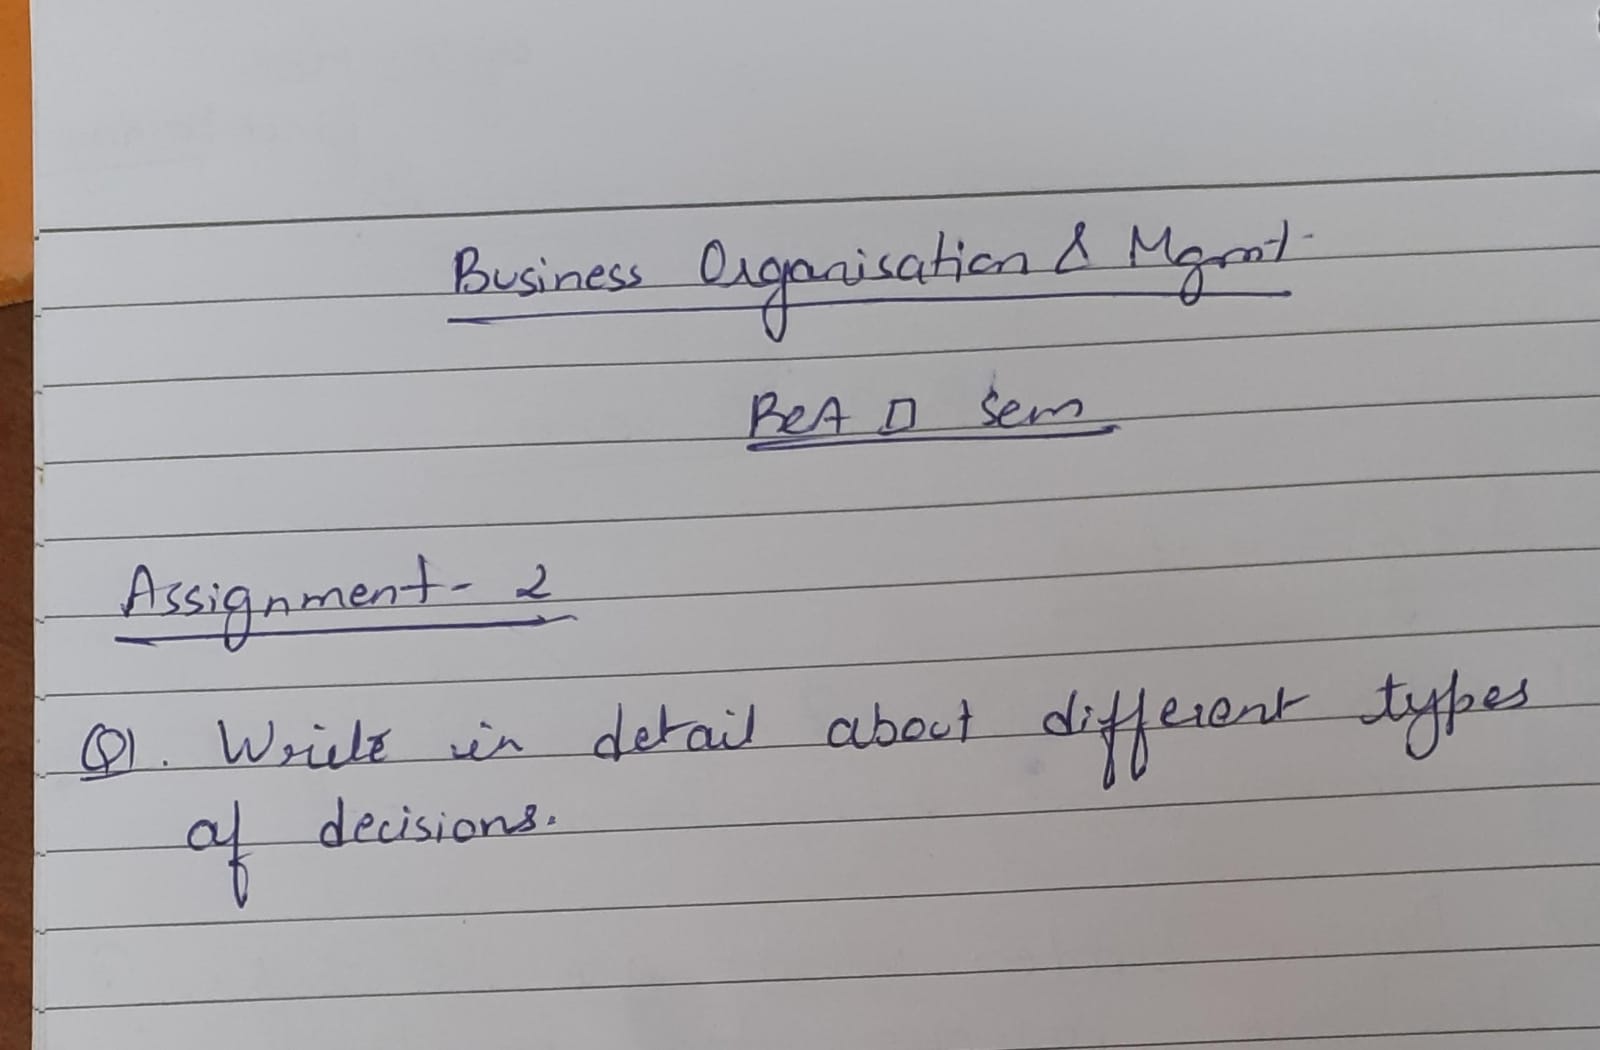 Business Organisation & Mgmt.
BCA II Sem
Assignment - 2
Q1. Write in detail about different types
of decisions.